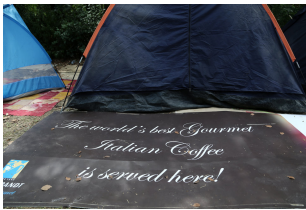 The world's best Gourmet
Italian Coffee
is served here!